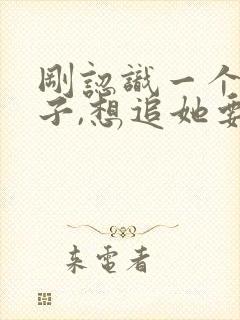 剛認識一个
子,想追她要
来電者